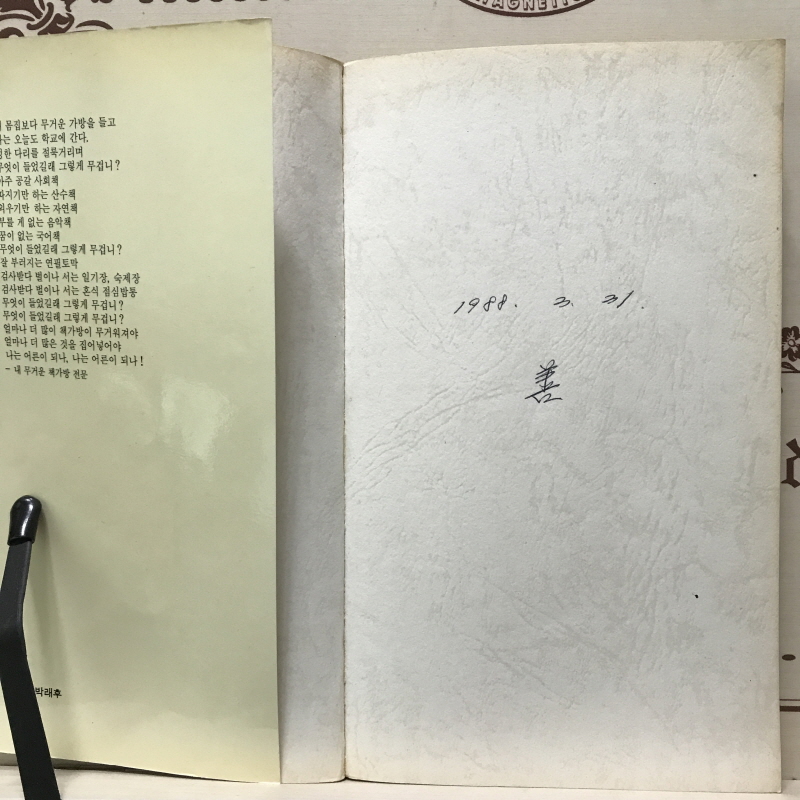 MAGNETIC
몸집보다 무거운 가방을 들고
나는 오늘도 학교에 간다.
다리를 절룩거리며
무엇이 들었길래 그렇게 무겁니?
아주 공갈 사회책
따지기만 하는 산수책
외우기만 하는 자연책
부를 게 없는 음악책
꿈이 없는 국어책
무엇이 들었길래 그렇게 무겁니?
잘 부러지는 연필토막
검사받다 벌이나 서는 일기장, 숙제장
검사받다 벌이나 서는 혼식 점심밥통
무엇이 들었길래 그렇게 무겁니?
무엇이 들었길래 그렇게 무겁니?
얼마나 더 많이 책가방이 무거워져야
얼마나 더 많은 것을 집어넣어야
나는 어른이 되나, 나는 어른이 되나!
- 내 무거운 책가방 전문
박래후
1988. 3. 31.
善